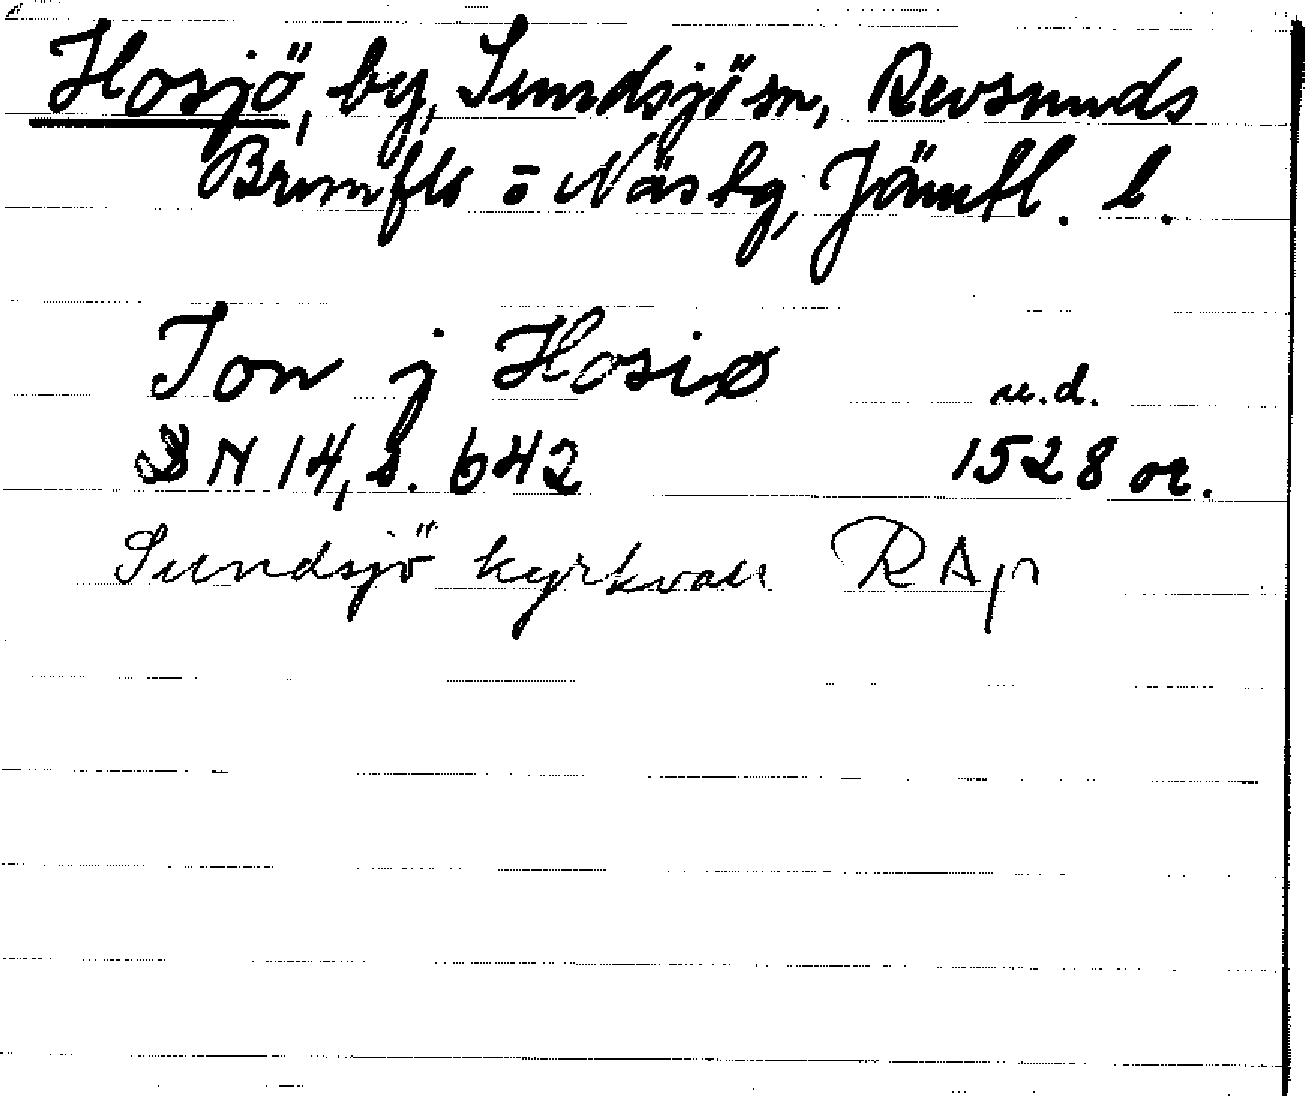 Hosjö, by, Sundsjö sn, Revsunds
Brunflo o Näs tg, Jämtl. l.
Jon j Hosiø u.d.
DN 14, s. 642 1528 or.
Sundsjö kyrkvall RAp